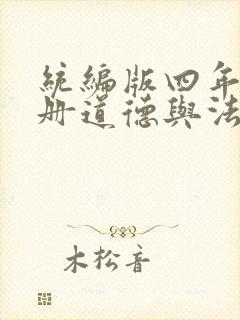 統編版四年
冊道德與法
木松音